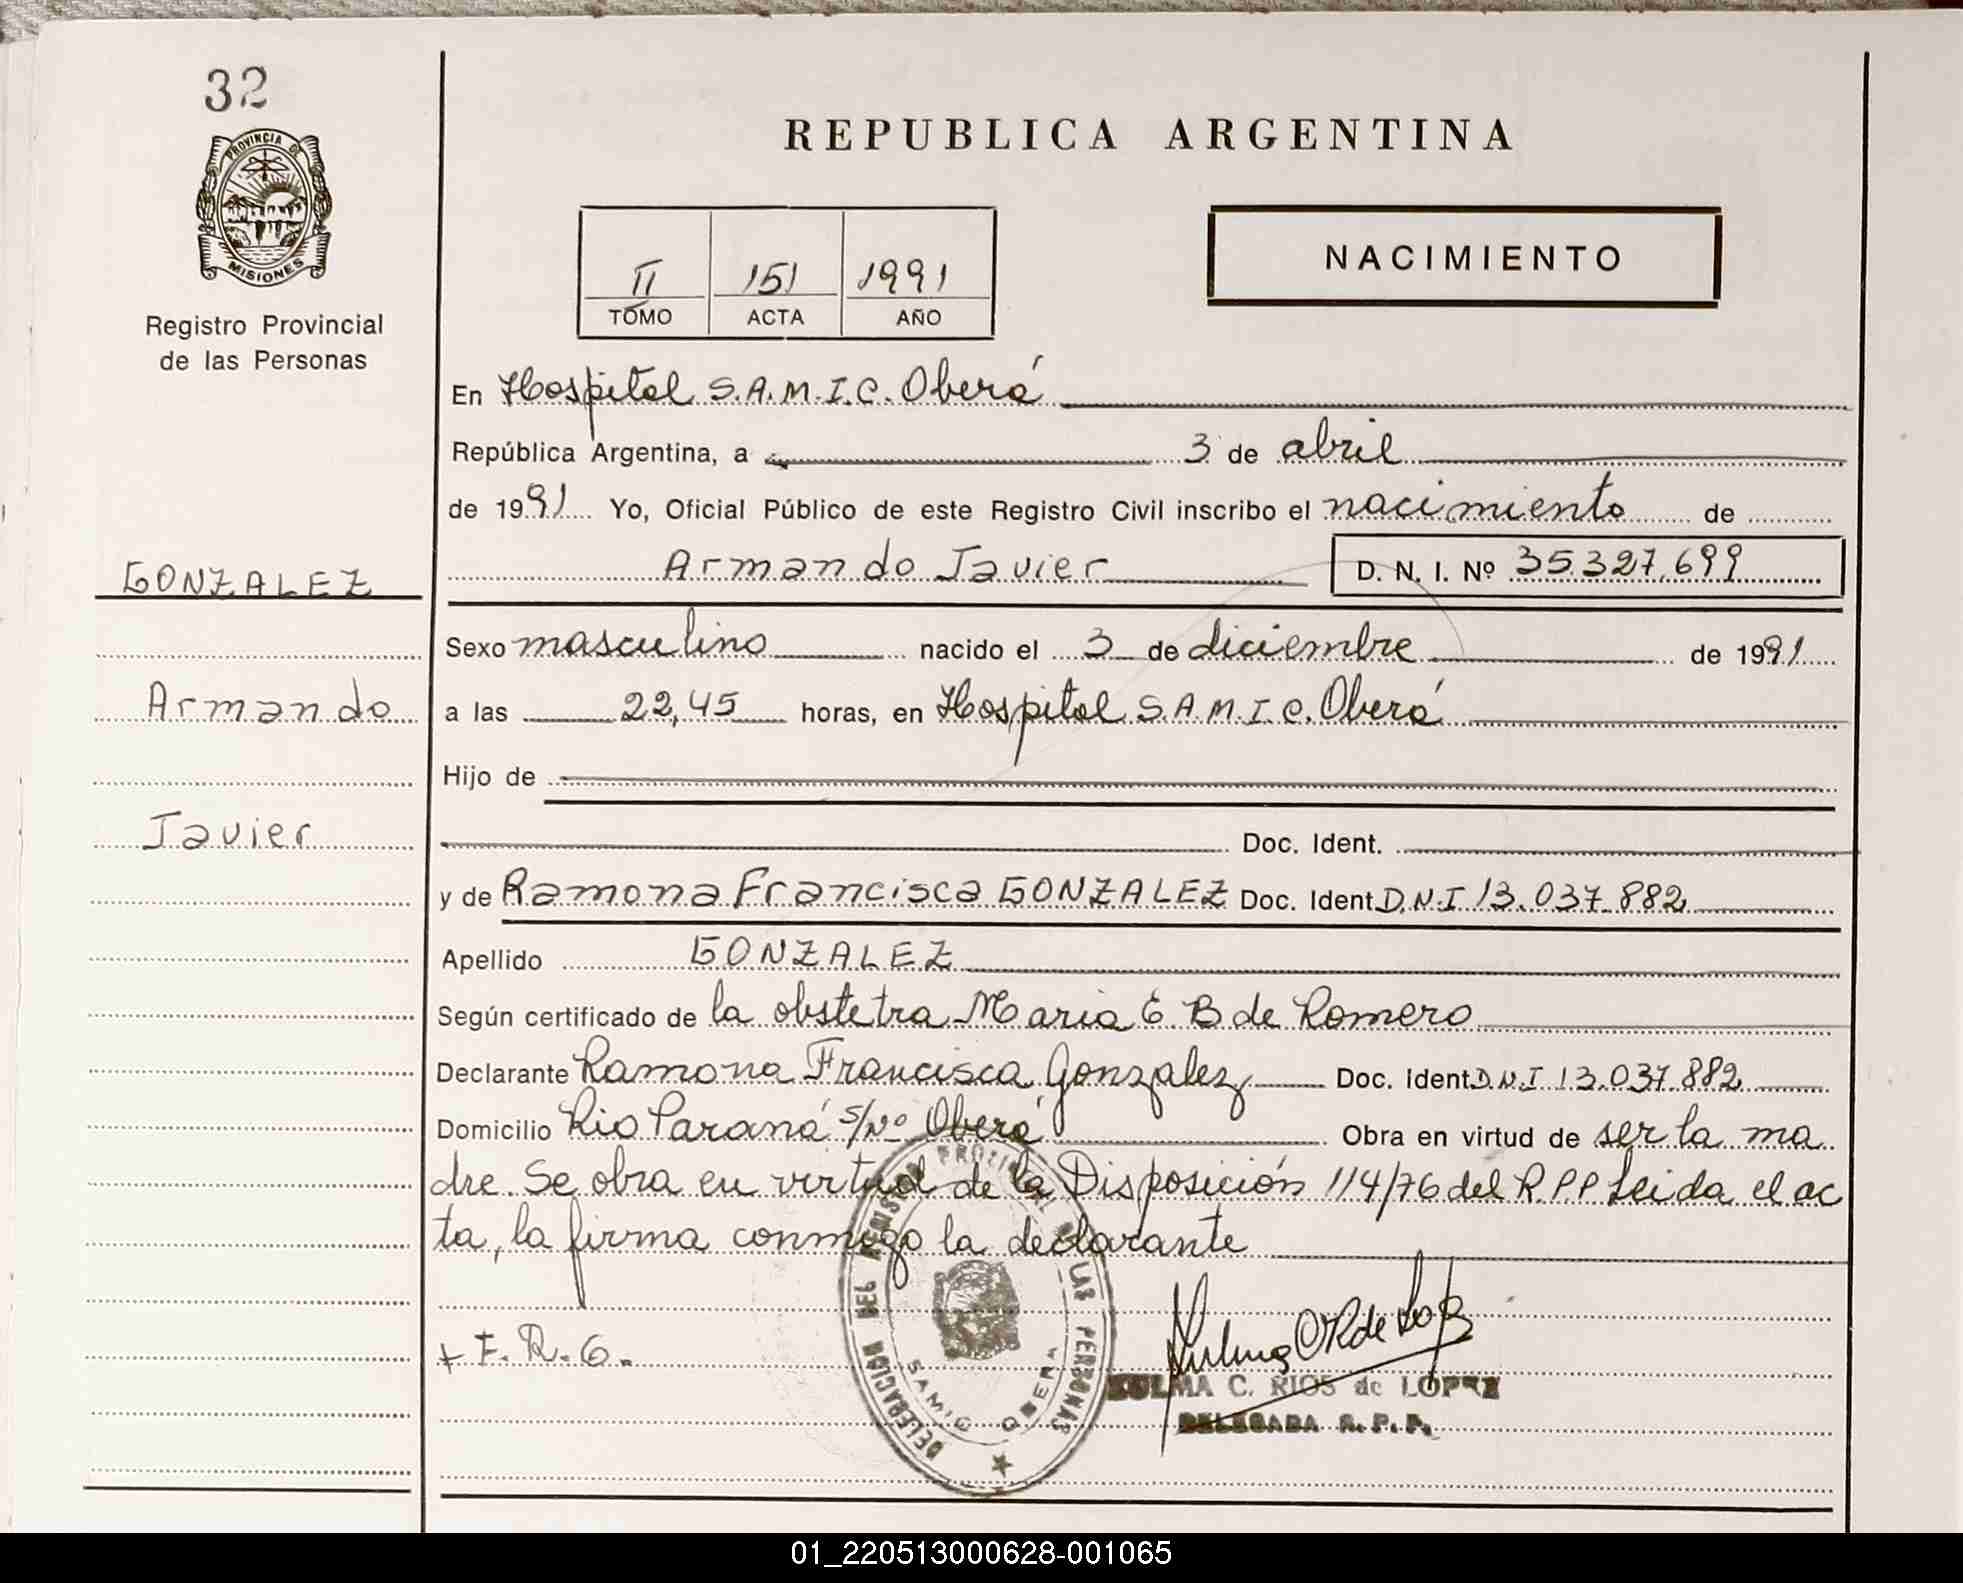 32
PROVINCIA DE
MISIONES
Registro Provincial
de las Personas
REPUBLICA ARGENTINA
II 151 1991
TOMO ACTA AÑO
NACIMIENTO
En Hospital S.A.M.I.C. Oberá
República Argentina, a 3 de abril
de 1991 Yo, Oficial Público de este Registro Civil inscribo el nacimiento de
GONZALEZ
Armando Javier D. N. I. Nº 35.327.699
Sexo masculino nacido el 3 de diciembre de 1991
Armando
a las 22,45 horas, en Hospital S.A.M.I.C. Oberá
Hijo de
Javier
Doc. Ident.
y de Ramona Francisca GONZALEZ Doc. Ident D.N.I 13.037.882
Apellido GONZALEZ
Según certificado de la obstetra Maria E. B de Romero
Declarante Ramona Francisca Gonzalez Doc. Ident D.N.I 13.037.882
Domicilio Rio Paraná S/Nº Oberá Obra en virtud de ser la ma
dre. Se obra en virtud de la Disposición 114/76 del R.P.P Leida el ac
ta, la firma conmigo la declarante
+ F. R. G.
DELEGACION DEL REGISTRO PROVINCIAL DE LAS PERSONAS
SAMIC OBERA
ZULMA C. RIOS de LOPEZ
DELEGADA R. P. P.
01_220513000628-001065